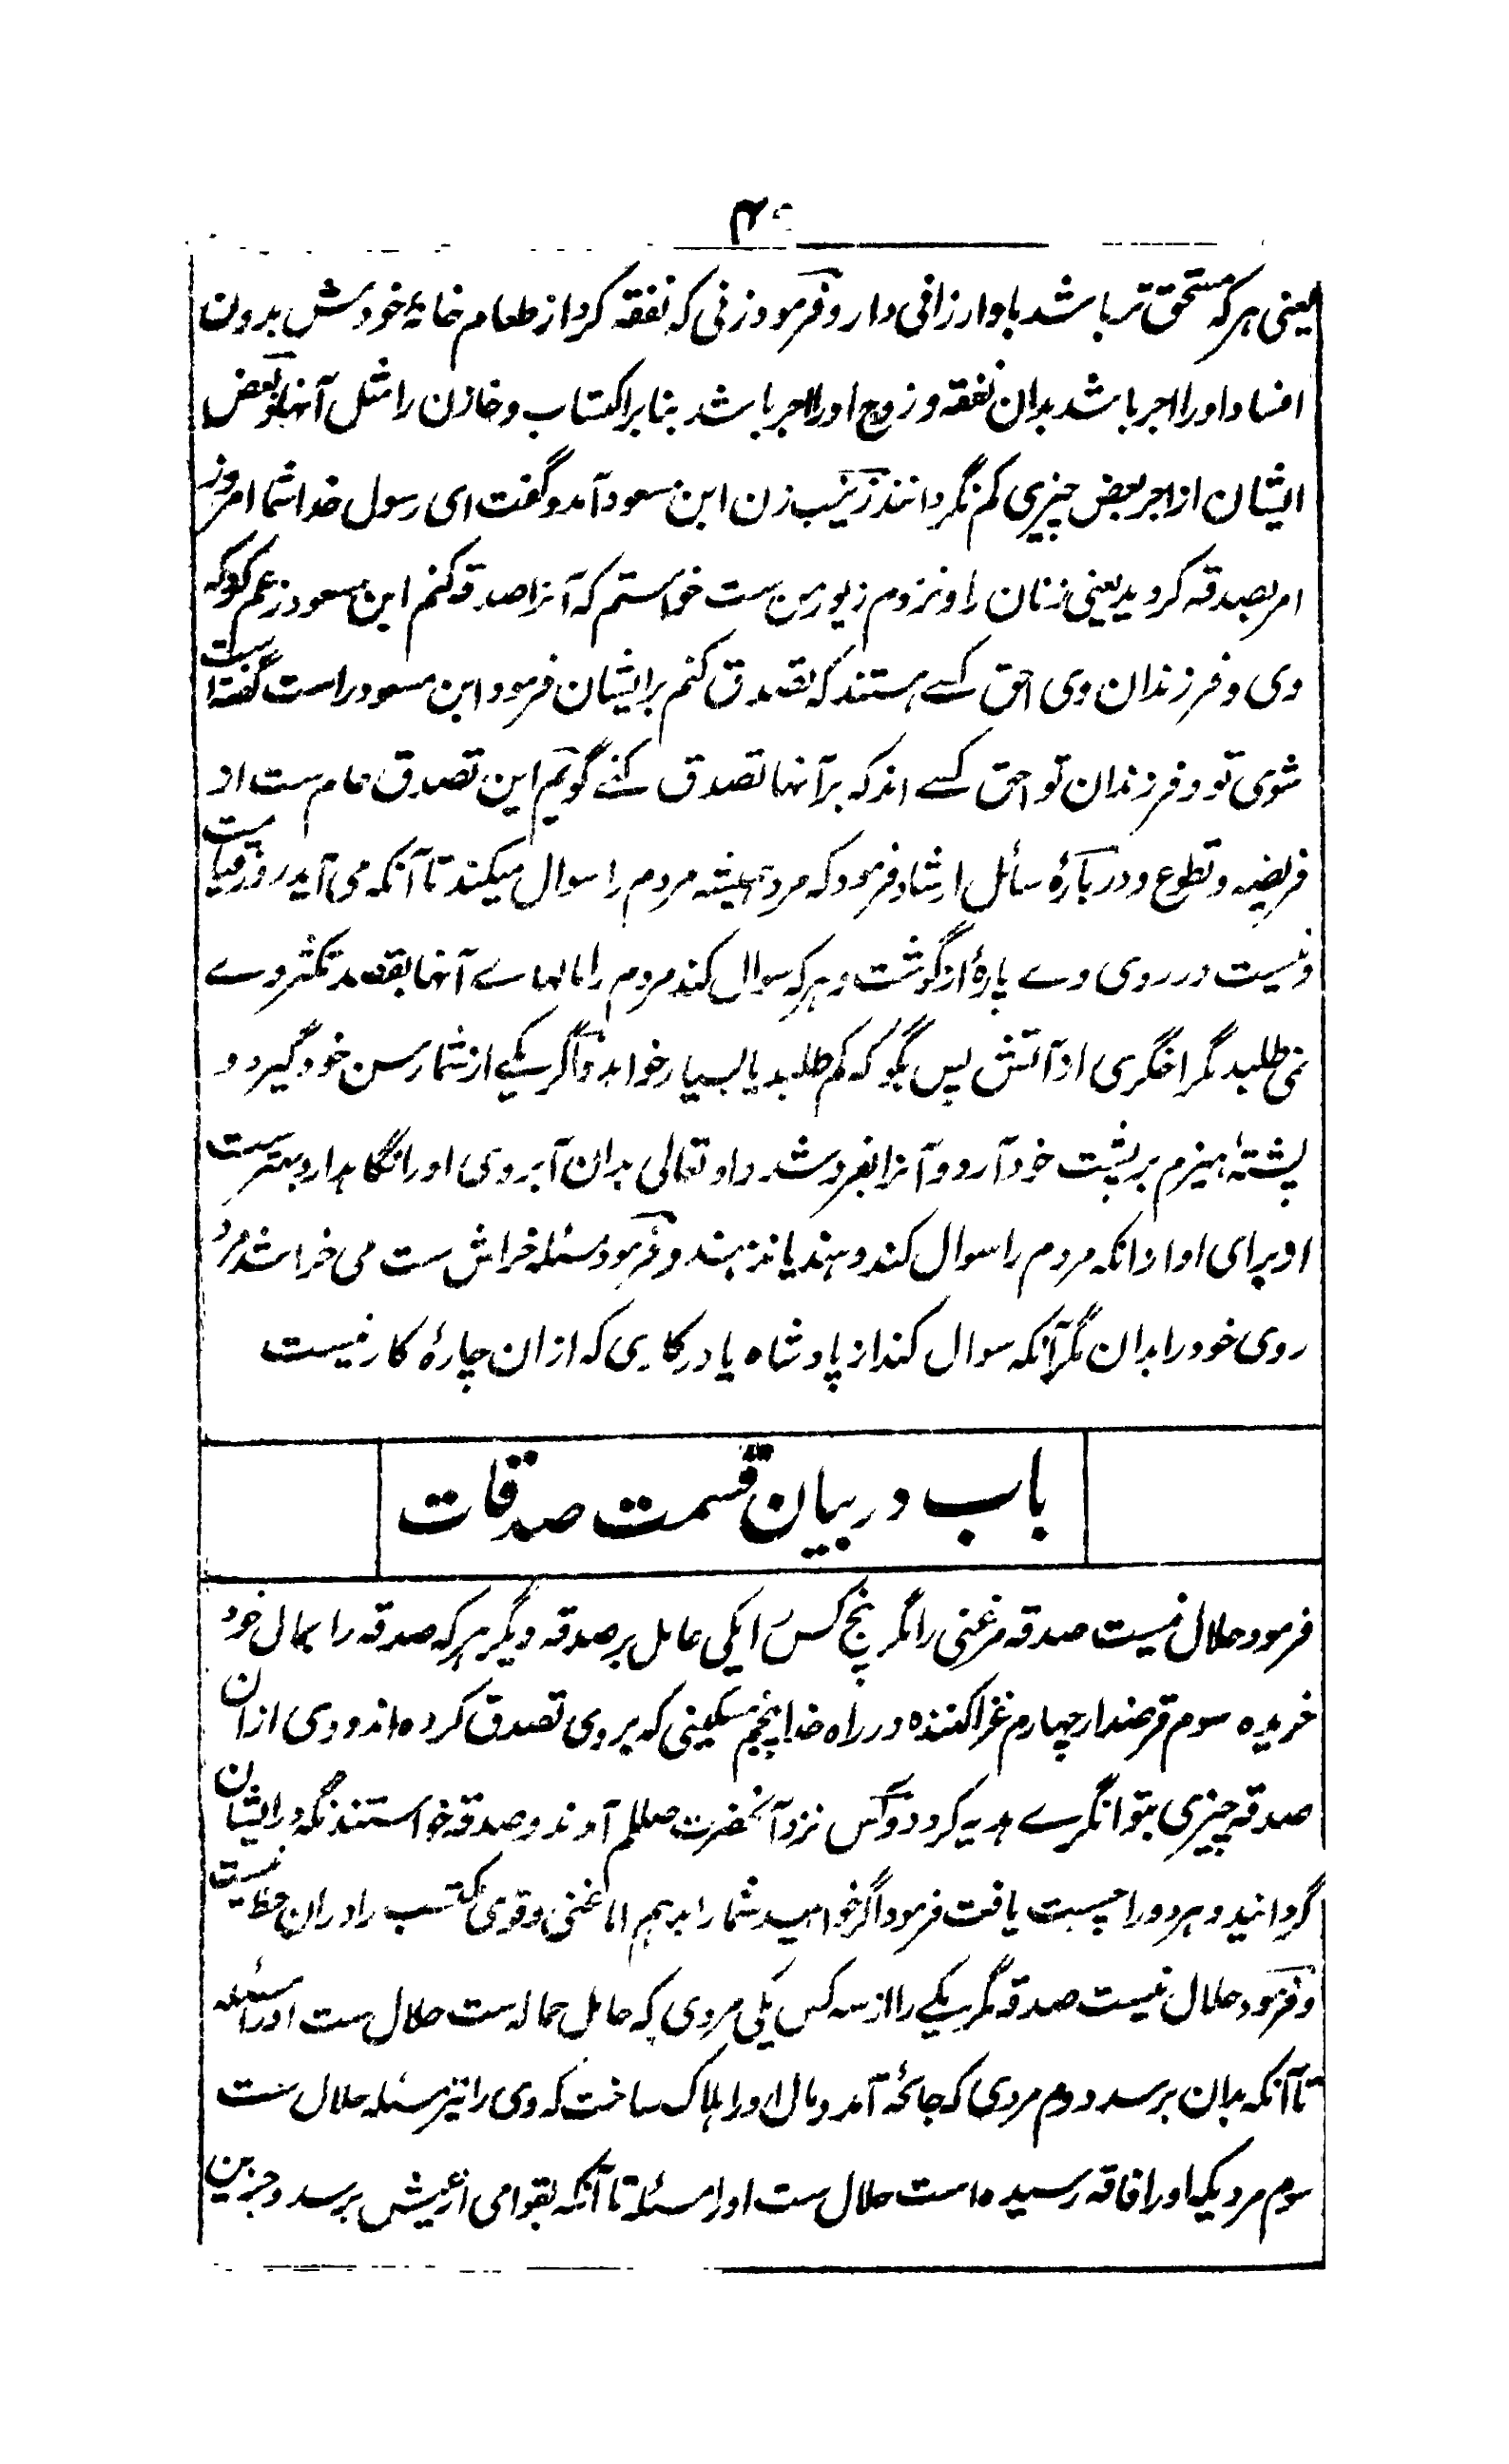 یعنی هرکه مستحق تر باشد باو ارزانی دار و فرمود زنی که نفقه کرد از طعام خانۀ خودش بدون
افساد او را اجر باشد بدان نفقه و زوج او را اجر باشد بنا بر اکتساب و خازن را مثل آنها و بعض
ایشان از اجر بعض چیزی کم نگردانند زینب زن ابن مسعود آمد و گفت ای رسول خدا شما امروز
امر بصدقه کردید یعنی زنان را و نزدم زیور من ست خواستم که آنرا صدقه کنم ابن مسعود زعم کرد که
وی و فرزندان وی احق کسے هستند که تصدق کنم بر ایشان فرمود ابن مسعود راست گفته است
شوی تو و فرزندان تو احق کسے اند که بر آنها تصدق کنے گویم این تصدق عام ست از
فریضه و تطوع و دربارۀ سائل ارشاد فرمود که مرد همیشه مردم را سوال میکند تا آنکه می آید روز قیامت
و نیست در روی وے پارۀ از گوشت و هرکه سوال کند مردم را مالهاے آنها بقصد تکثر وے
نمی طلبد مگر اخگری از آتش پس بگو که کم طلبد یا بسیار خواهد و اگر یکے از شما رسن خود گیرد و
پشتۀ هیزم بر پشت خود آرد و آنرا بفروشد و او تعالی بدان آبروی او را نگاهدارد بهتر ست
او برای او ازانکه مردم را سوال کند دهند یا ندهند و فرمود مسئله خراش ست می خراشد مرد
روی خود را بدان مگر آنکه سوال کند از پادشاه یا در کاری که ازان چارۀ کار نیست
باب در بیان قسمت صدقات
فرمود حلال نیست صدقه مر غنی را مگر پنج کس را یکی عامل بر صدقه دیگر هرکه صدقه را بمال خود
خریده سوم قرضدار چهارم غزا کننده در راه خدا پنجم مسکینی که بر وی تصدق کرده اند و وی ازان
صدقه چیزی بتوانگرے هدیه کرد دو کس نزد آنحضرت صللم آمدند و صدقه خواستند نگه در ایشان
گردانید و هردو را چست یافت فرمود اگر خواهید شما را بدهم اما غنی و قوی مکتسب را دران حظ نیست
و فرمود حلال نیست صدقه مگر یکے را از سه کس یکی مردی که حامل حماله ست حلال ست او را مسئله
تا آنکه بدان برسد دوم مردی که جائحه آمد و مال او را هلاک ساخت که وی را نیز مسئله حلال ست
سوم مردیکه او را فاقه رسیده است حلال ست او را مسئله تا آنکه بقوامی از عیش برسد و جز این